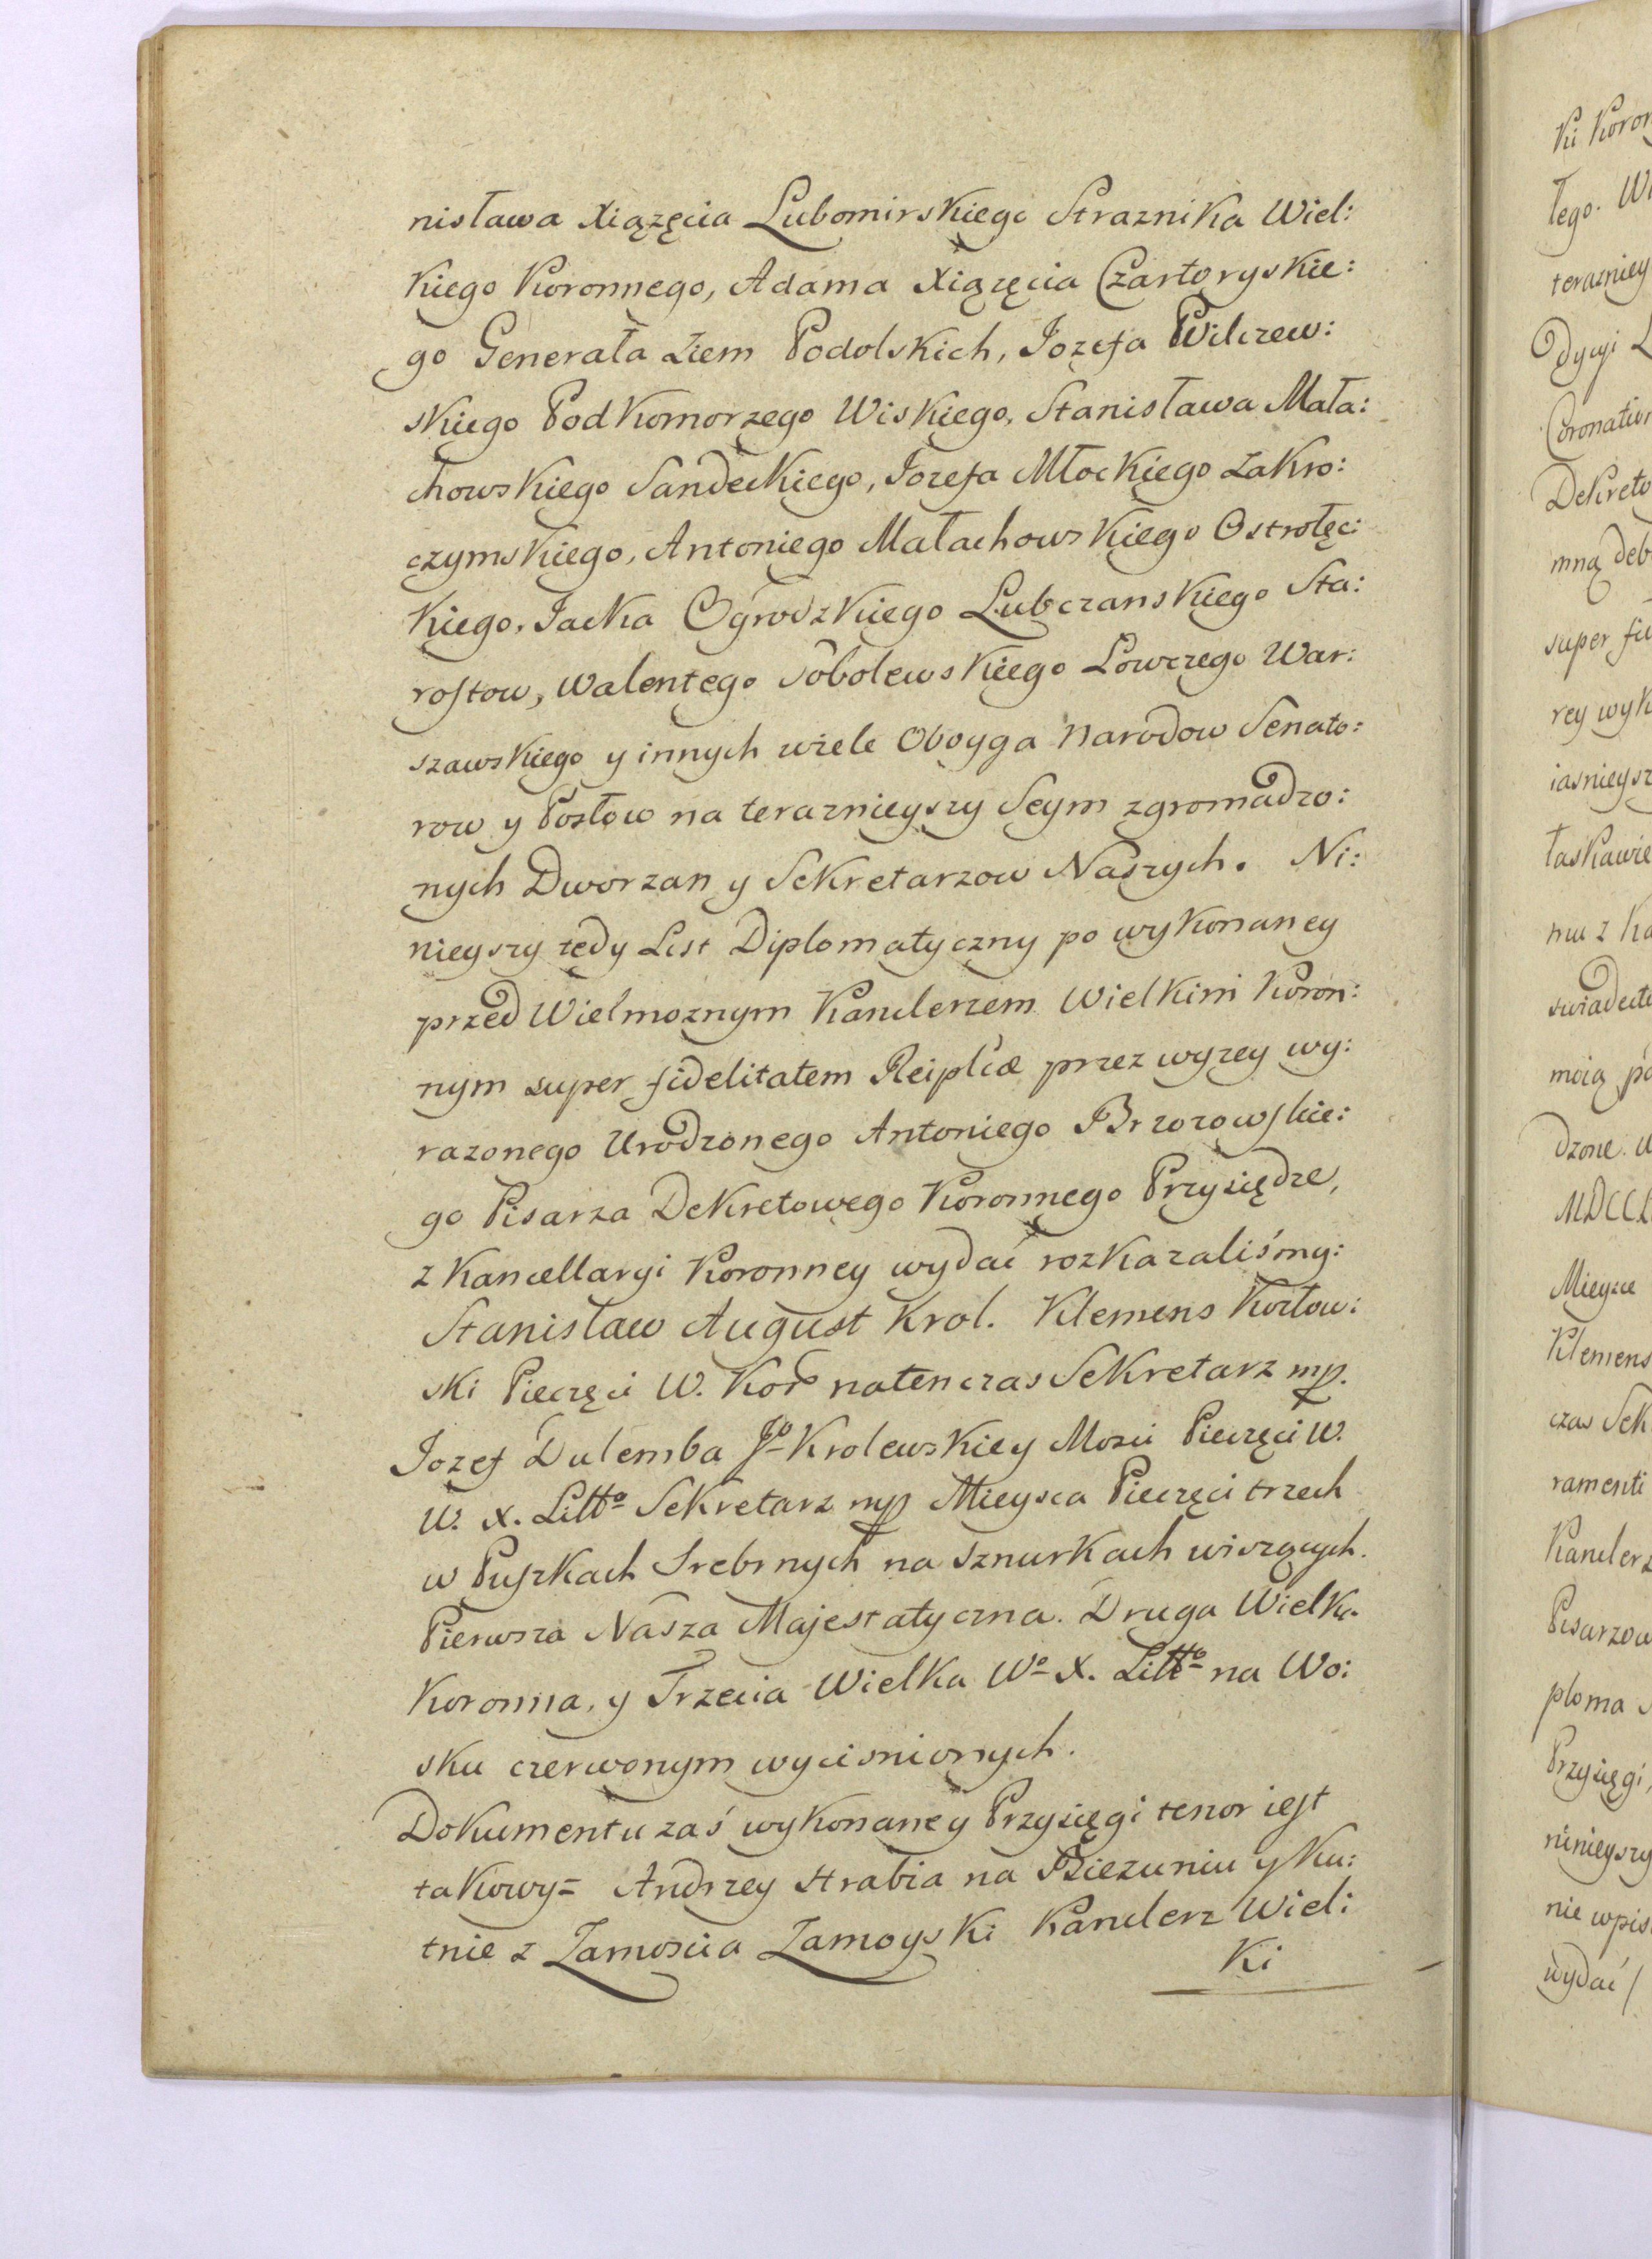 nisława Xiązęcia Lubomirskiego Straznika Wiel:
kiego Koronnego, Adama Xiązęcia Czartoryskie:
go Generała Ziem Podolskich, Jozefa Wilczew:
skiego Podkomorzego Wiskiego, Stanisława Mała:
chowskiego Sandeckiego, Jozefa Młockiego Zakro:
czymskiego, Antoniego Małachowskiego Ostrołęc:
kiego, Jacka Ogrodzkiego Lubczanskiego Sta:
rostow, Walentego Sobolewskiego Łowczego War:
szawskiego y innych wiele Oboyga Narodow Senato:
row y Posłow na teraznieyszy Seym zgromadzo:
nych Dworzan y Sekretarzow Naszych. Ni:
nieyszy tedy List Diplomatyczny po wykonaney
przed Wielmoznym Kanclerzem Wielkim Koron:
nym super fidelitatem Reiplicæ przez wyzey wy:
razonego Urodzonego Antoniego Brzozowskie:
go Pisarza Dekretowego Koronnego Przysiędze,
z Kancellaryi Koronney wydać rozkazaliśmy:
Stanisław August Krol. Klemens Kozłow:
ski Pieczęci W. Kor. natenczas Sekretarz mp.
Jozef Dulemba Jo Krolewskiey Mosci Pieczęci W.
W. X. Litto Sekretarz mp Mieysca Pieczęci trzech
w Puszkach Srebrnych na sznurkach wiszących.
Pierwsza Nasza Majestatyczna. Druga Wielka
Koronna, y Trzecia Wielka Wo X. Litto na Wo:
sku czerwonym wycisnionych.
Dokumentu zaś wykonaney Przysięgi tenor iest
takowy= Andrzey Hrabia na Biezuniu y Ku:
tnie z Zamoscia Zamoyski Kanclerz Wiel:
ki
tego.
Dekreto
super
łaskawie
dzone.
Mieysce
Klemens
czas Sek
ramenti
Przysięgi,
ninieyszy
nie wpis
wydać